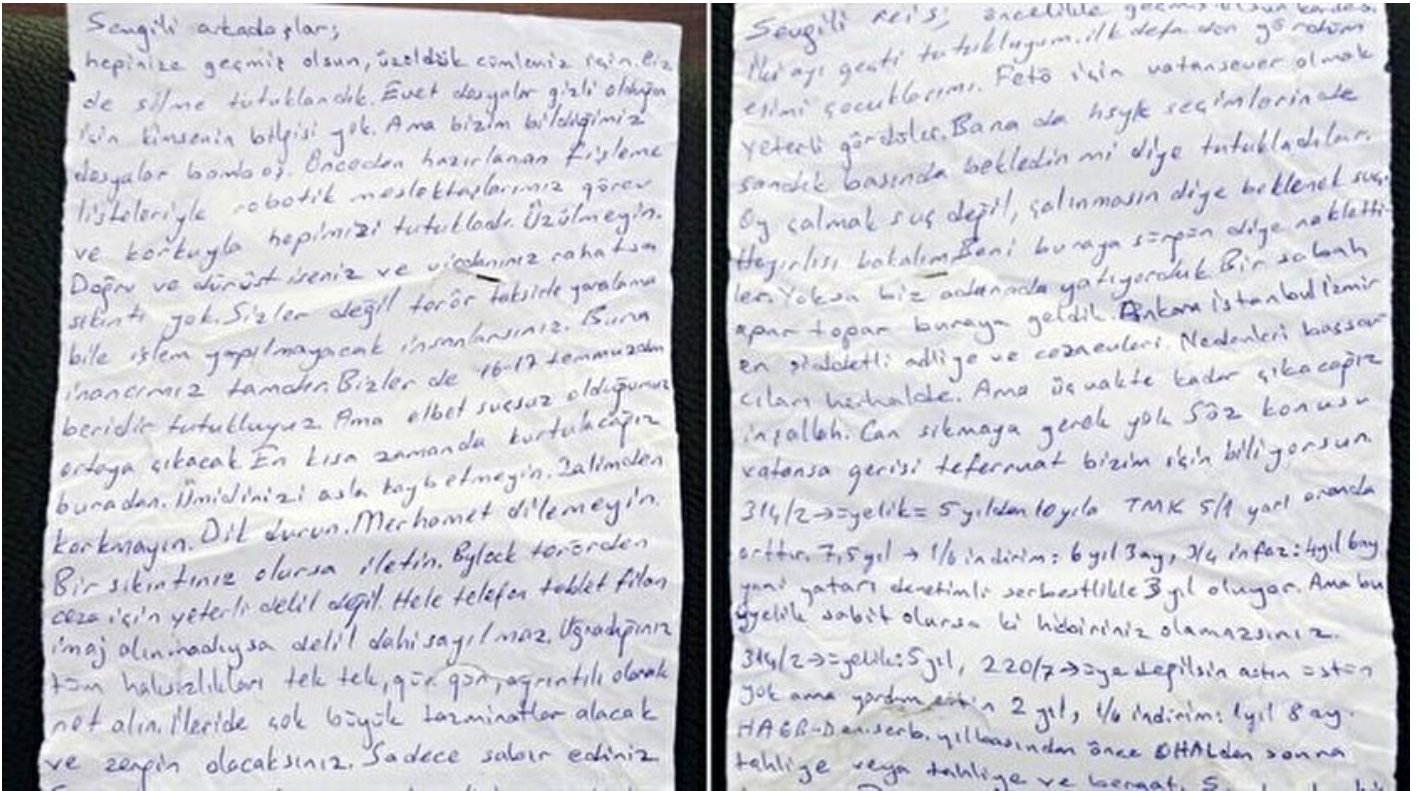 Sevgili arkadaşlar;
hepinize geçmiş olsun, üzüldük cümleniz için. Biz
de silme tutuklandık. Evet dosyalar gizli olduğu
için kimsenin bilgisi yok. Ama bizim bildiğimiz
dosyalar bomboş. Önceden hazırlanan fişleme
listeleriyle robotik meslektaşlarımız görev
ve korkuyla hepimizi tutukladı. Üzülmeyin.
Doğru ve dürüst iseniz ve vicdanınız rahatsa
sıkıntı yok. Sizler değil terör taksirle yaralama
bile işlem yapılmayacak insanlarsınız. Buna
inancımız tamdır. Bizler de 16-17 temmuzdan
beridir tutukluyuz. Ama elbet suçsuz olduğumuz
ortaya çıkacak. En kısa zamanda kurtulacağız
buradan. Ümidinizi asla kaybetmeyin. Zalimden
korkmayın. Dik durun. Merhamet dilemeyin.
Bir sıkıntınız olursa iletin. Bylock terörden
ceza için yeterli delil değil. Hele telefon tablet filan
imaj alınmadıysa delil dahi sayılmaz. Uğradığınız
tüm haksızlıkları tek tek, gün gün, ayrıntılı olarak
not alın. İleride çok büyük tazminatlar alacak
ve zengin olacaksınız. Sadece sabır ediniz
Sevgili reis; öncelikle geçmiş olsun kardeşi
İki ayı geçti tutukluyum. ilk defa dün gördüm
eşimi çocuklarımı. Fetö için vatansever olmak
yeterli gördüler. Bana da hsyk seçimlerinde
sandık başında bekledin mi diye tutukladılar.
Oy çalmak suç değil, çalınmasın diye beklemek suç.
Hayırlısı bakalım. Beni buraya sürgün diye naklettiler
ler. Yoksa biz adanada yatıyorduk. Bir sabah
apar topar buraya geldik. Ankara istanbul izmir
en şiddetli adliye ve cezaevleri. Nedenleri başsav
cıları herhalde. Ama üç vakte kadar çıkacağız
inşallah. Can sıkmaya gerek yok. Söz konusu
vatansa gerisi teferruat bizim için biliyorsun
314/2 → üyelik = 5 yıldan 10 yıla TMK 5/1 yarı oranda
arttır. 7,5 yıl → 1/6 indirim: 6 yıl 3 ay, 3/4 infaz: 4 yıl 8 ay
yani yatarı denetimli serbestlikle 3 yıl oluyor. Ama bu
üyelik sabit olursa ki hiçbiriniz olamazsınız.
314/2 → üyelik: 5 yıl, 220/7 → üye değilsin astın üstün
yok ama yardım ettin 2 yıl, 1/6 indirim: 1 yıl 8 ay.
HAGB-Den.serb. yılbaşından önce OHALden sonra
tahliye veya tahliye ve beraat.